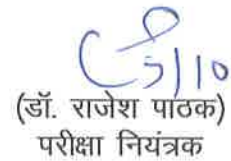 5/10
(डॉ. राजेश पाठक)
परीक्षा नियंत्रक